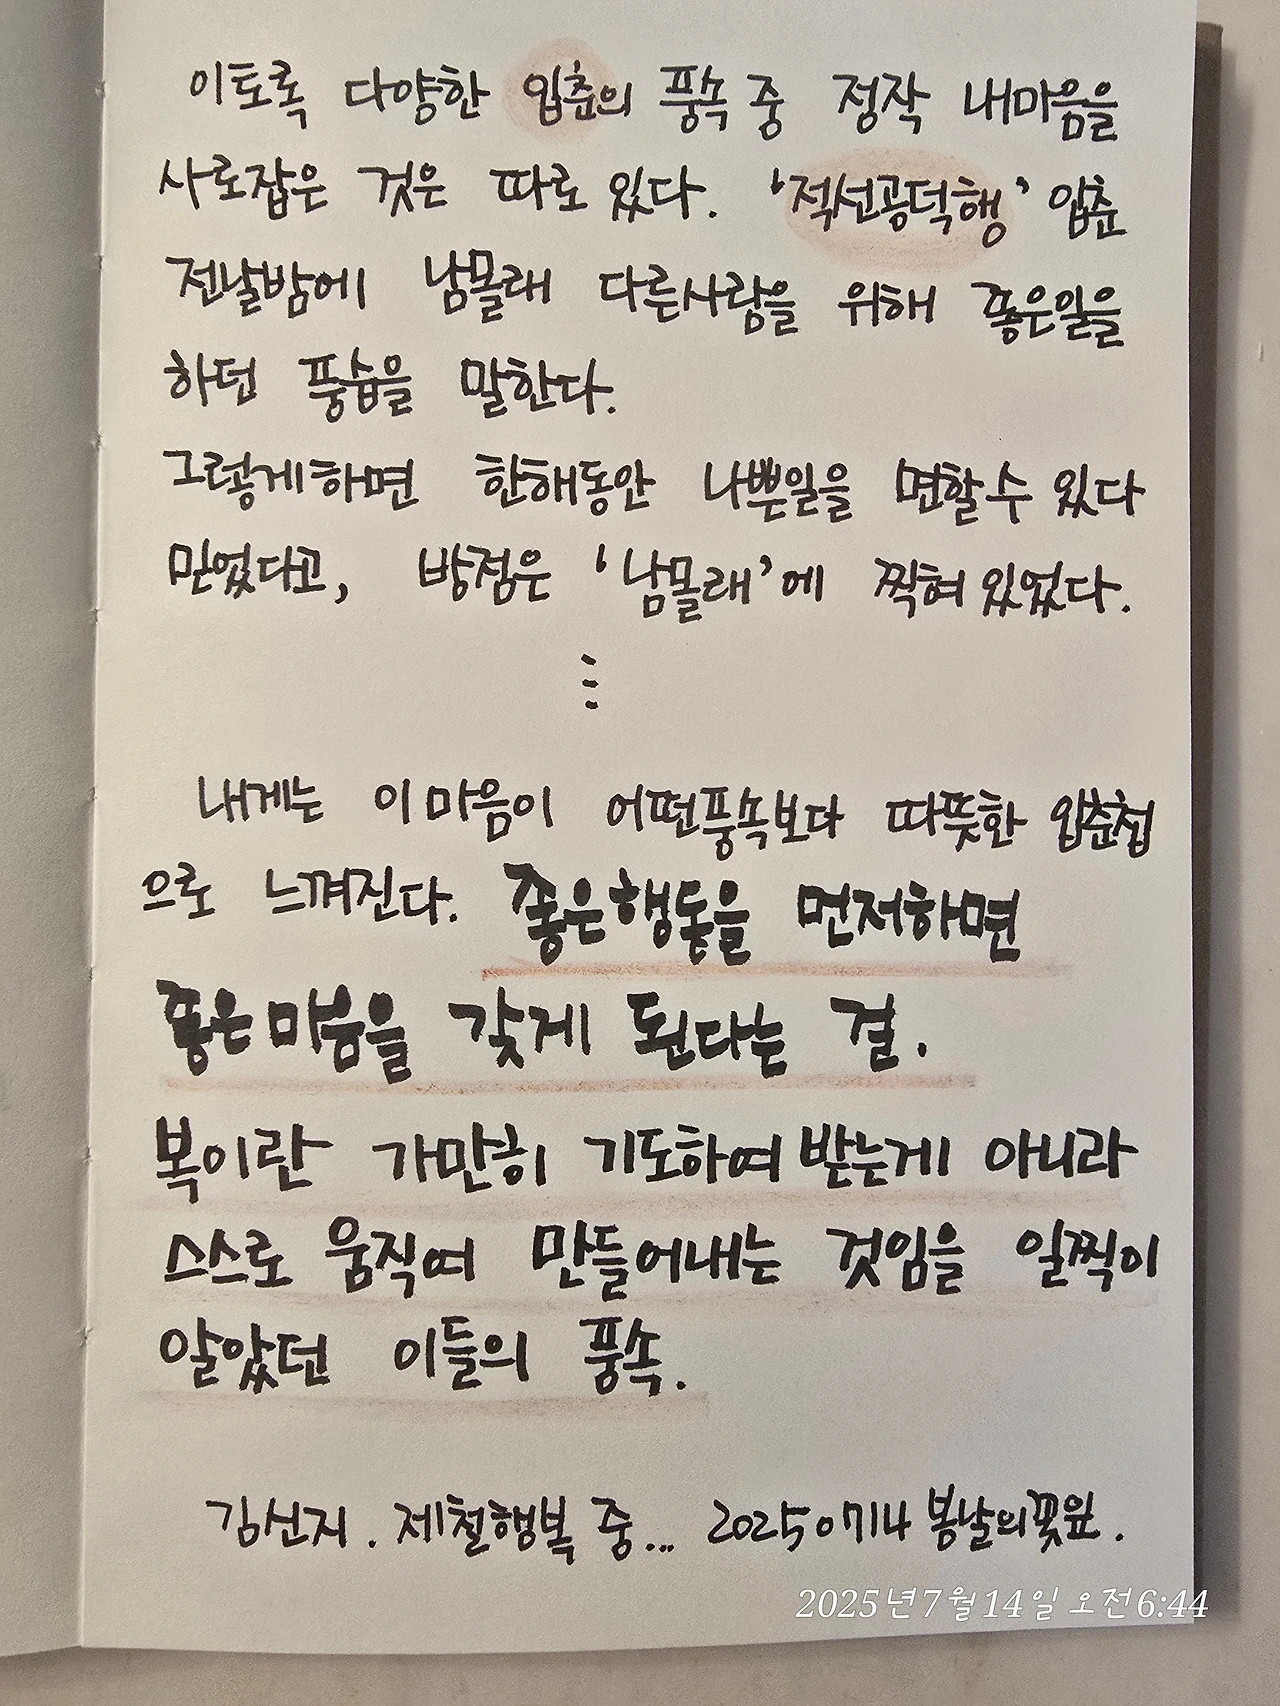 이토록 다양한 입춘의 풍속 중 정작 내마음을
사로잡은 것은 따로 있다. '적선공덕행' 입춘
전날밤에 남몰래 다른사람을 위해 좋은일을
하던 풍습을 말한다.
그렇게하면 한해동안 나쁜일을 면할수 있다
믿었다고, 방점은 '남몰래'에 찍혀있었다.
⋮
내게는 이마음이 어떤풍속보다 따뜻한 입춘첩
으로 느껴진다. 좋은행동을 먼저하면
좋은마음을 갖게 된다는 걸.
복이란 가만히 기도하여 받는게 아니라
스스로 움직여 만들어내는 것임을 일찍이
알았던 이들의 풍속.
김신지. 제철행복 중... 20250714 봄날의꽃잎.
2025년 7월 14일 오전 6:44